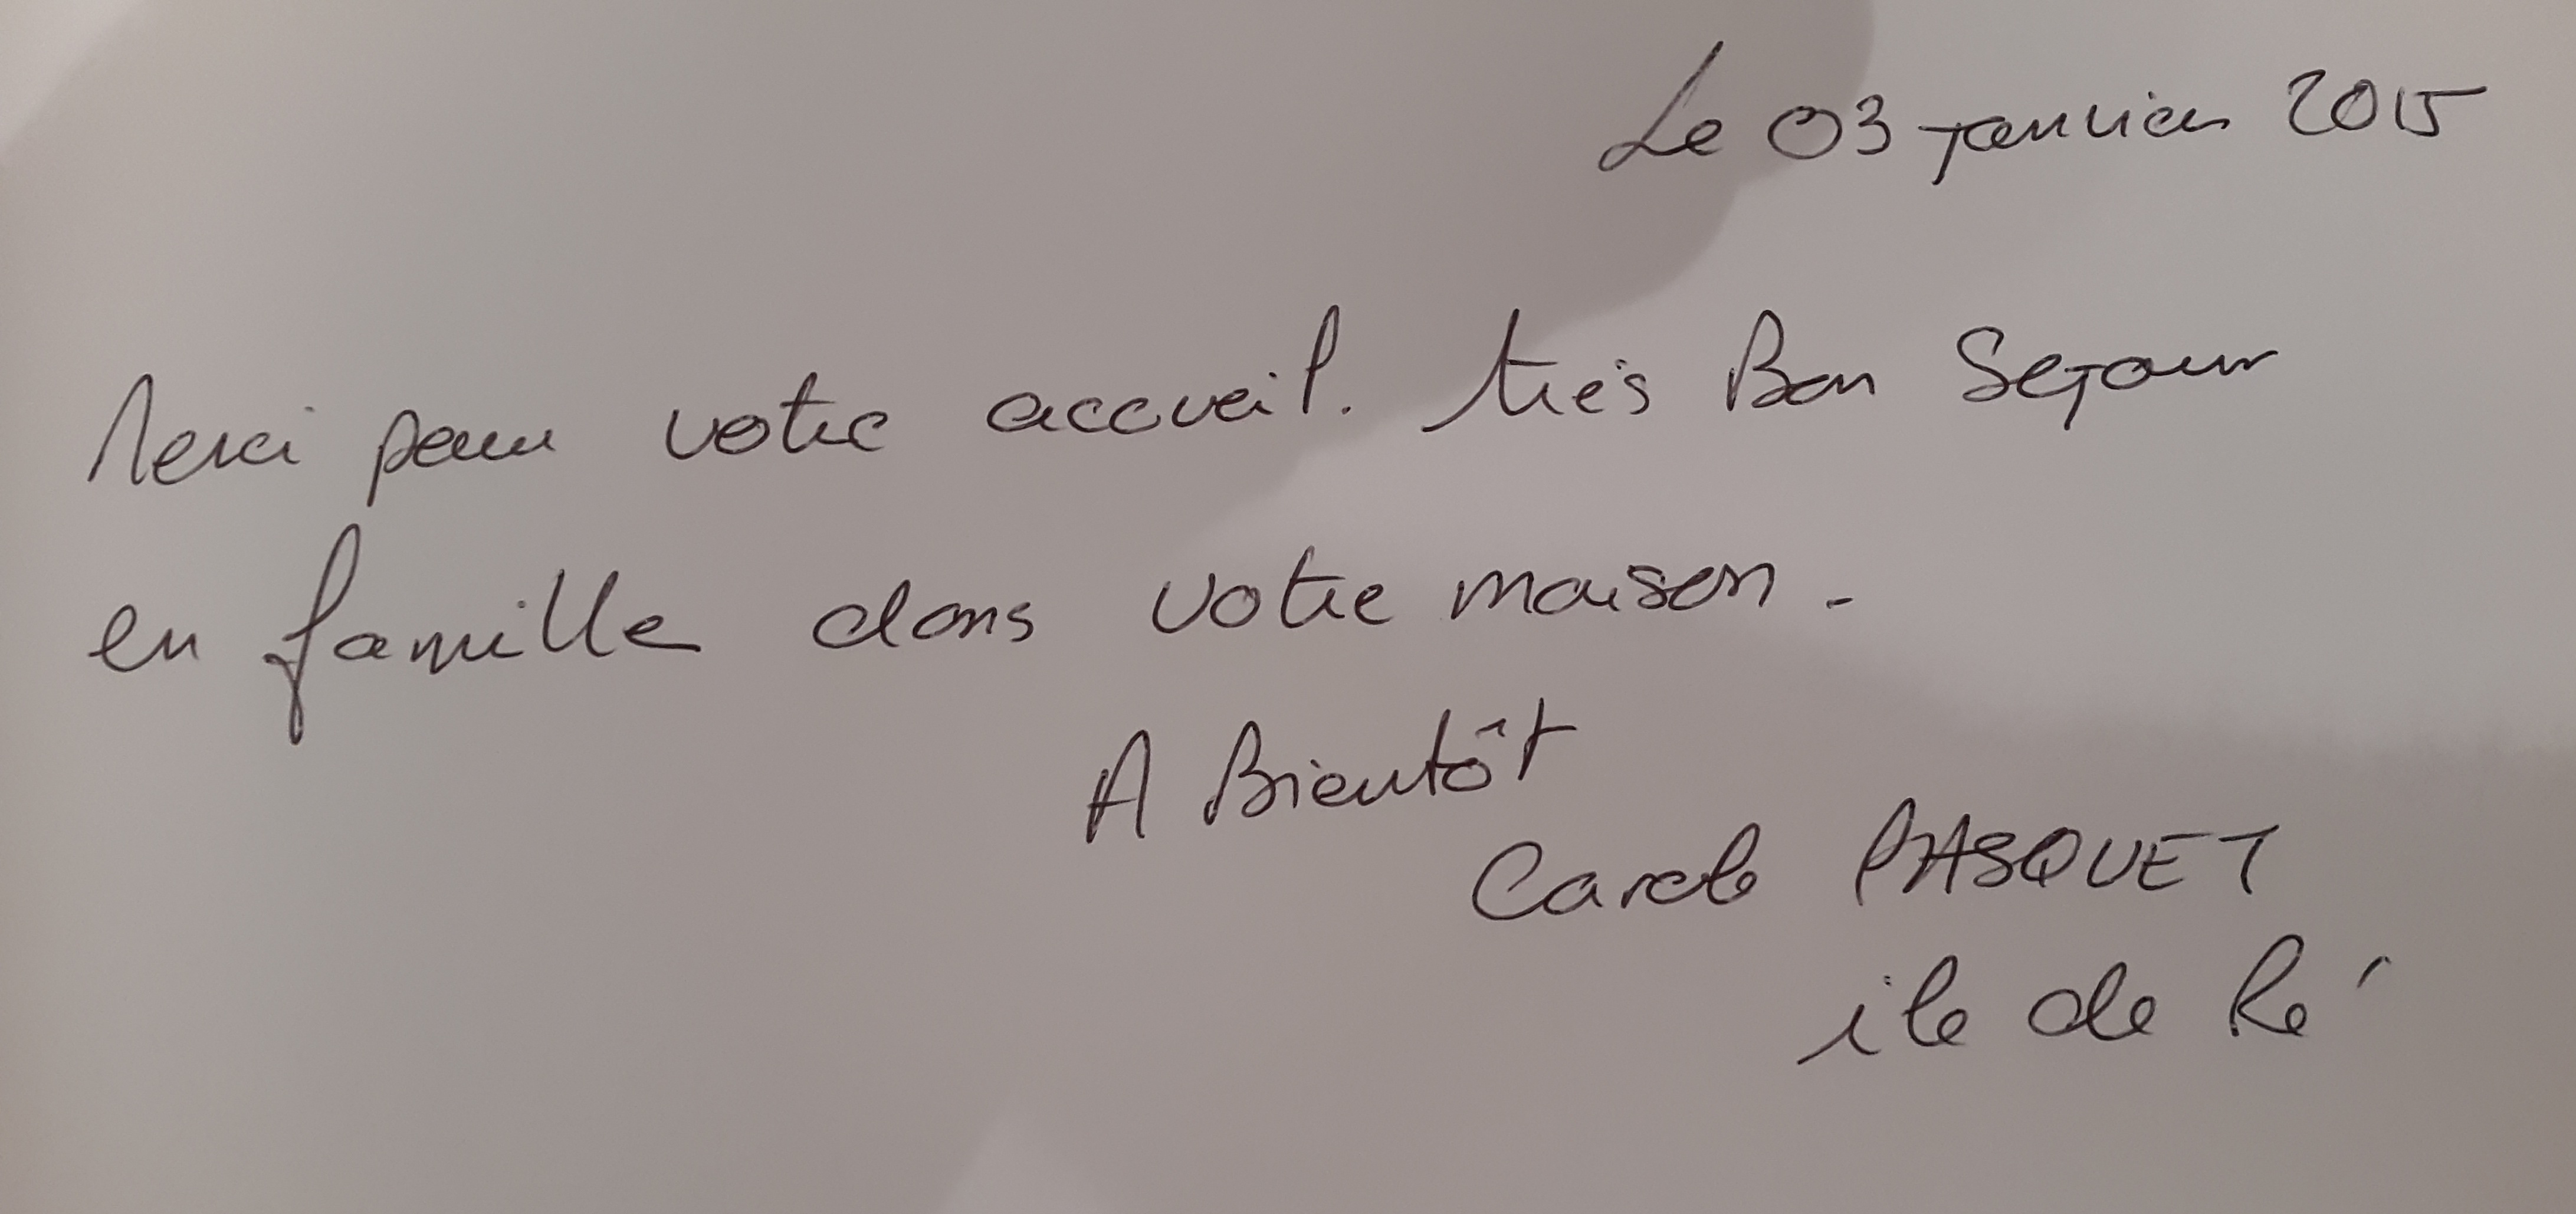 Le 03 janvier 2015
Merci pour votre accueil. très Bon Sejour
en famille dans votre maison -
A Bientôt
Carole PASQUET
ile de Ré